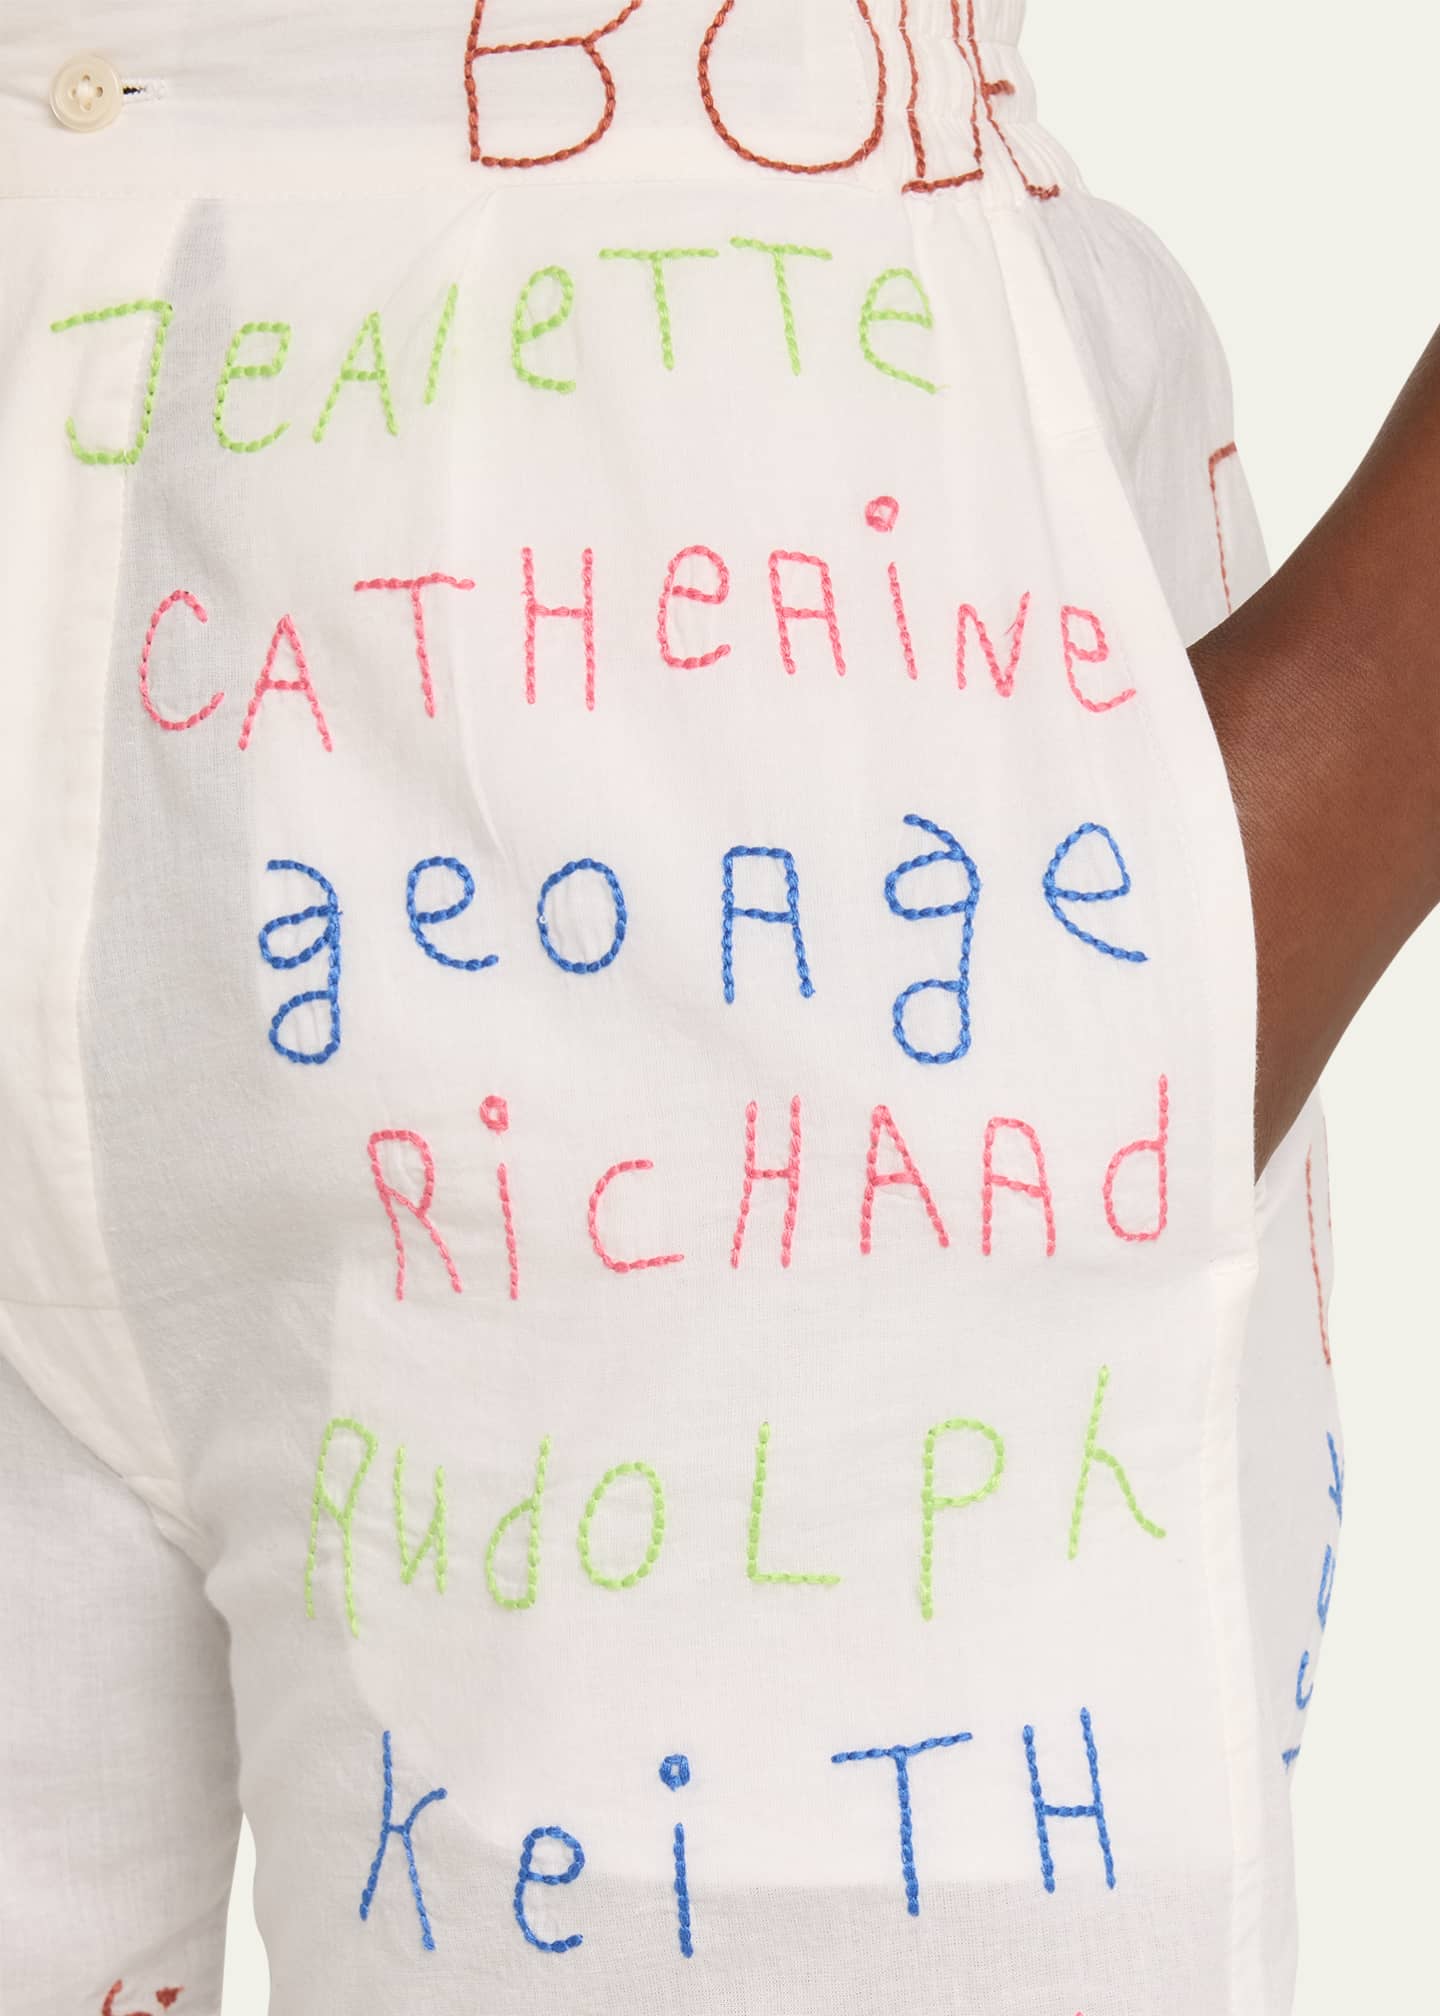 JeANeTTe
CATHeRiNe
geoRge
RicHARd
RudoLPh
keiTH